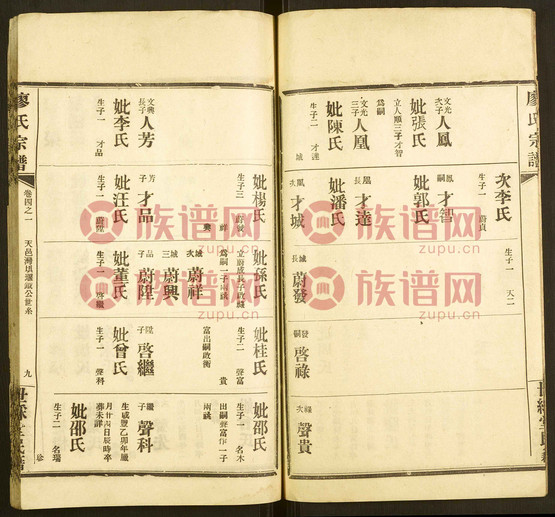 廖氏宗譜
文光次子 人鳳
妣張氏
立人順三子才智
爲嗣
文光三子 人凰
妣陳氏
生子二 才達
城
次李氏
生子一 蔚貞
鳳嗣 才智
妣郭氏
凰長 才達
妣潘氏
凰次 才城
生子一 天二
城長 蔚發
發嗣 啓祿
祿次 聲貴
妣楊氏
生子三 蔚發
祥
興
妣孫氏
爲嗣
妣桂氏
生子二 聲富
貴
富出嗣啟衡
妣邵氏
生子一 名木
出嗣聲富作一子
兩祧
文興長子 人芳
妣李氏
生子一 才品
芳子 才品
妣汪氏
生子一 蔚陞
城次 蔚祥
城三 蔚興
品子 蔚陞
妣董氏
生子一 啓繼
陞子 啓繼
妣曾氏
生子一 聲科
繼子 聲科
生咸豐乙卯年臘
月十四日辰時卒
葬未詳
妣邵氏
生子二 名瑞
珍
廖氏宗譜
卷四之一
天邑灣琪躍嶽公世系
九
族谱网
zupu.cn
族谱网
zupu.cn
族谱网
zupu.cn
族谱网
zupu.cn